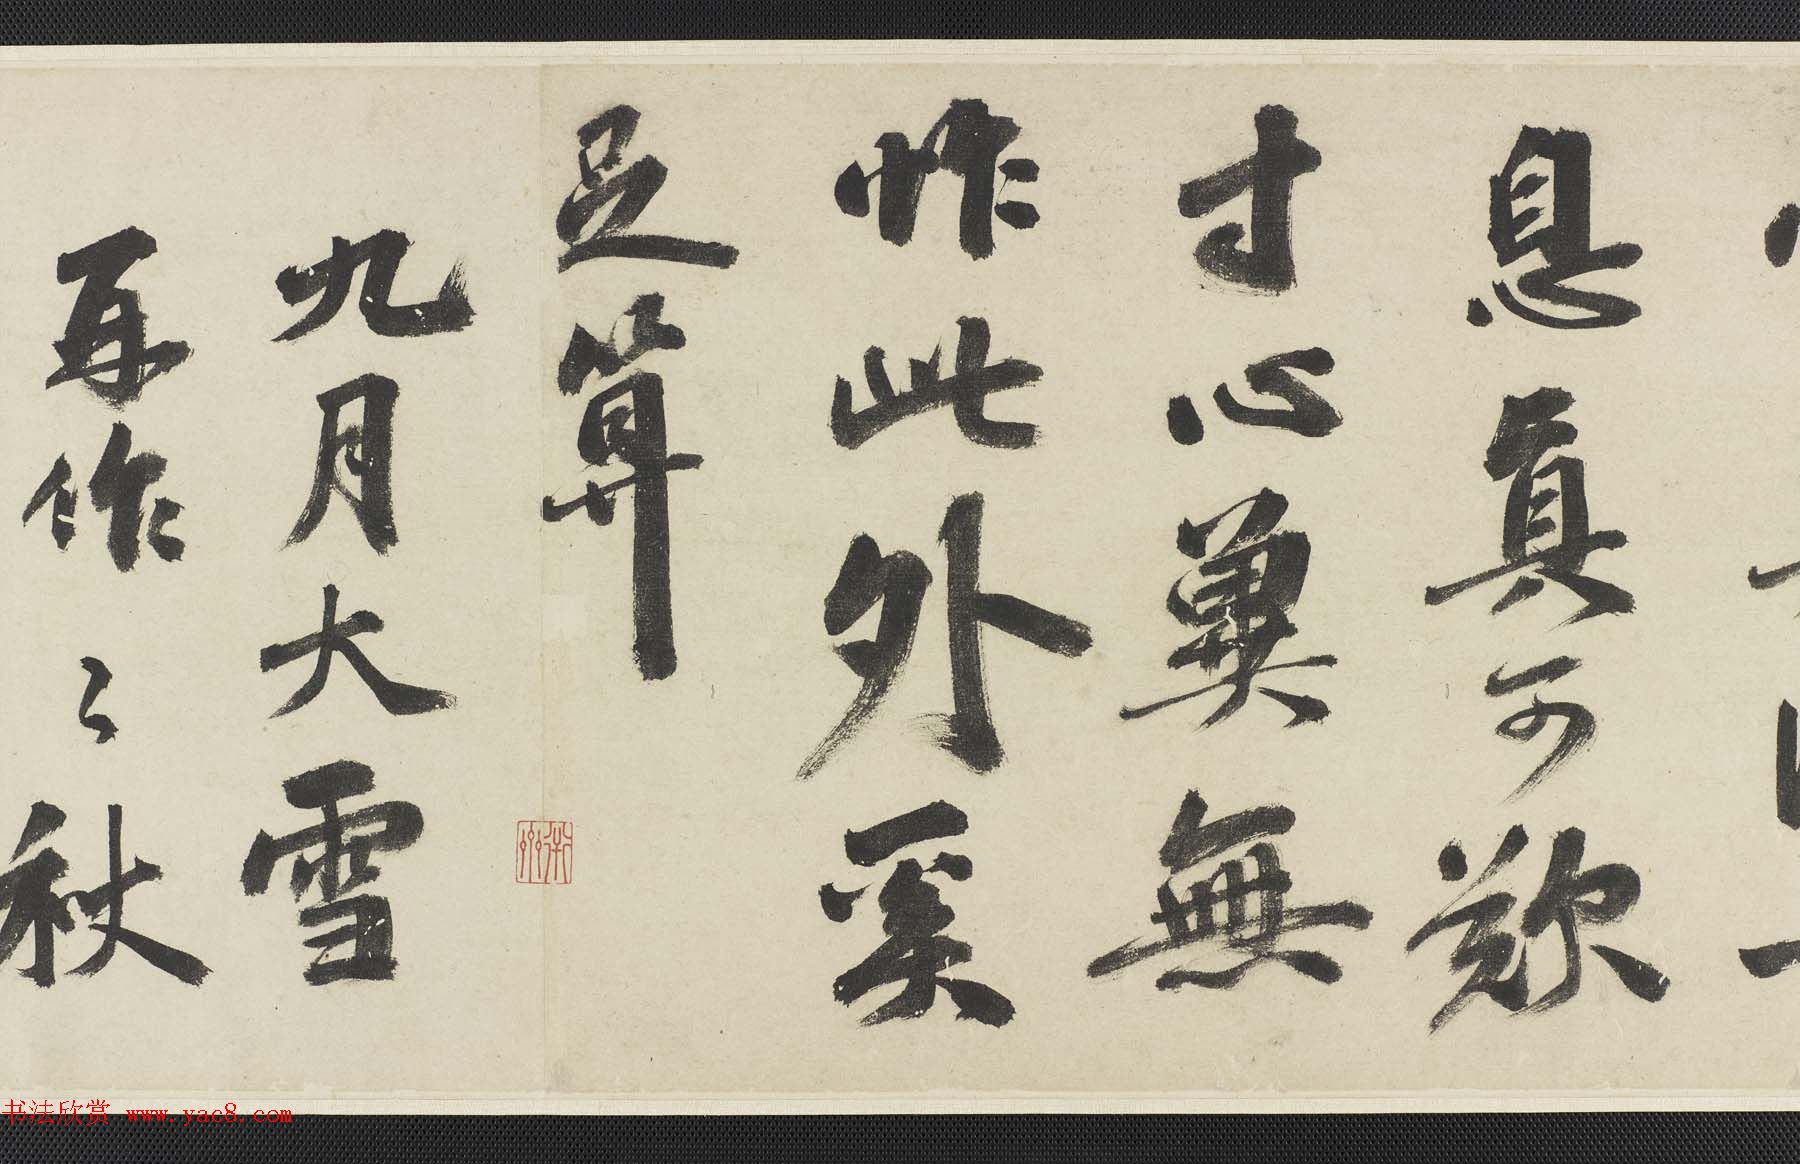 息真可歎
寸心莫無
怍此外奚
足算
九月大雪
再作〻秋
书法欣赏 www.yac8.com